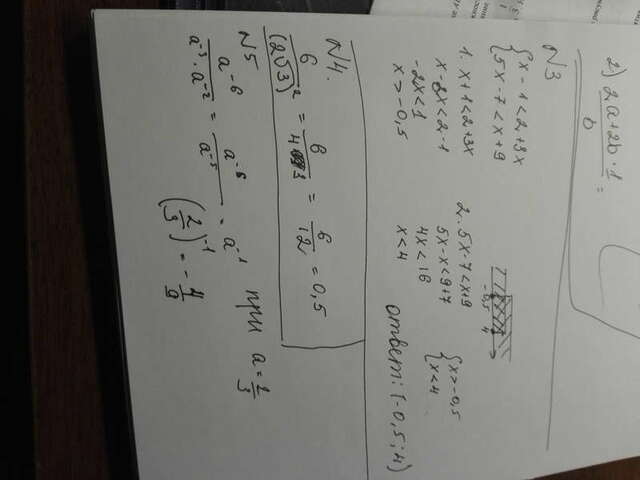 2) 2a+2b · 1 / b =
N3
{x - 1 < 2 + 3x
{5x - 7 < x + 9
1. x + 1 < 2 + 3x
x - 3x < 2 - 1
-2x < 1
x > -0,5
2. 5x - 7 < x + 9
5x - x < 9 + 7
4x < 16
x < 4
-0,5 4
{x > -0,5
{x < 4
ответ: (-0,5; 4)
N4.
6/(2√3)² = 6/4·3 = 6/12 = 0,5
N5
a⁻⁶/a⁻³·a⁻² = a⁻⁶/a⁻⁵ = a⁻¹ при a = 2/3
(2/3)⁻¹ = -4/9